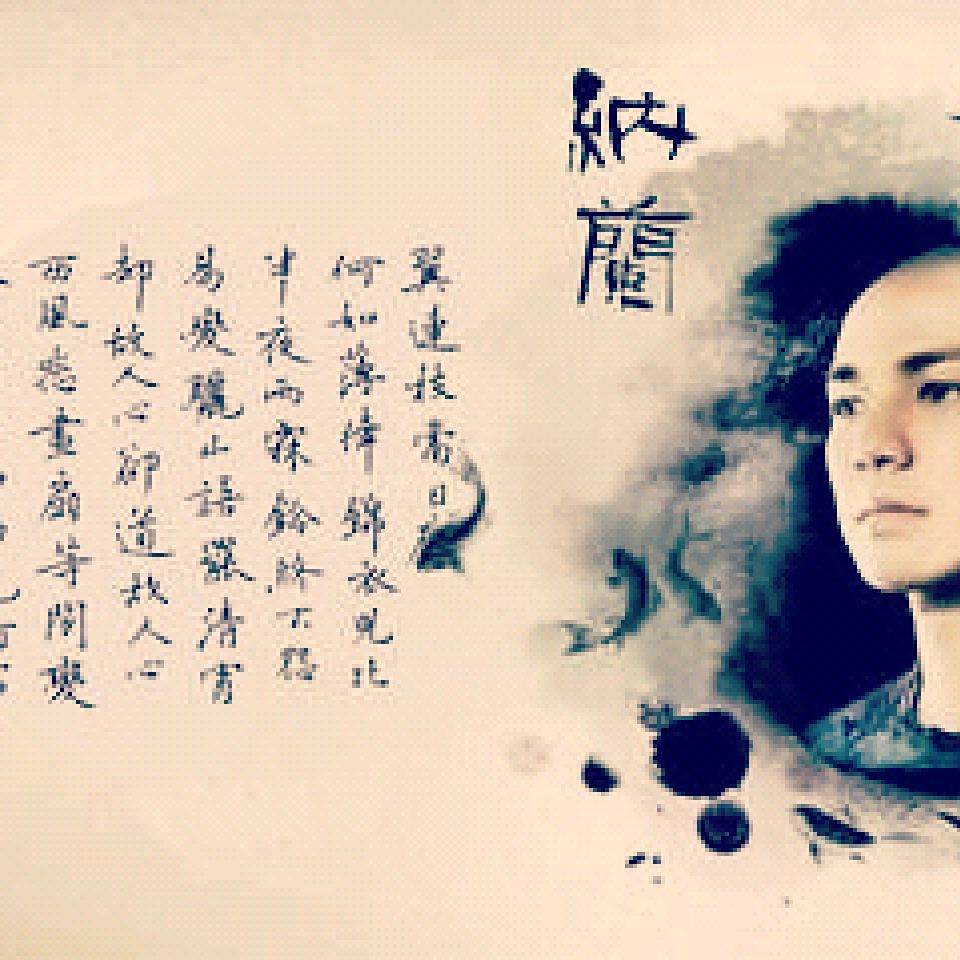 納蘭
西風悲畫扇等閒變
卻故人心卻道故人心
易變驪山語罷清宵
半夜雨霖鈴終不怨
何如薄倖錦衣兒比
翼連枝當日